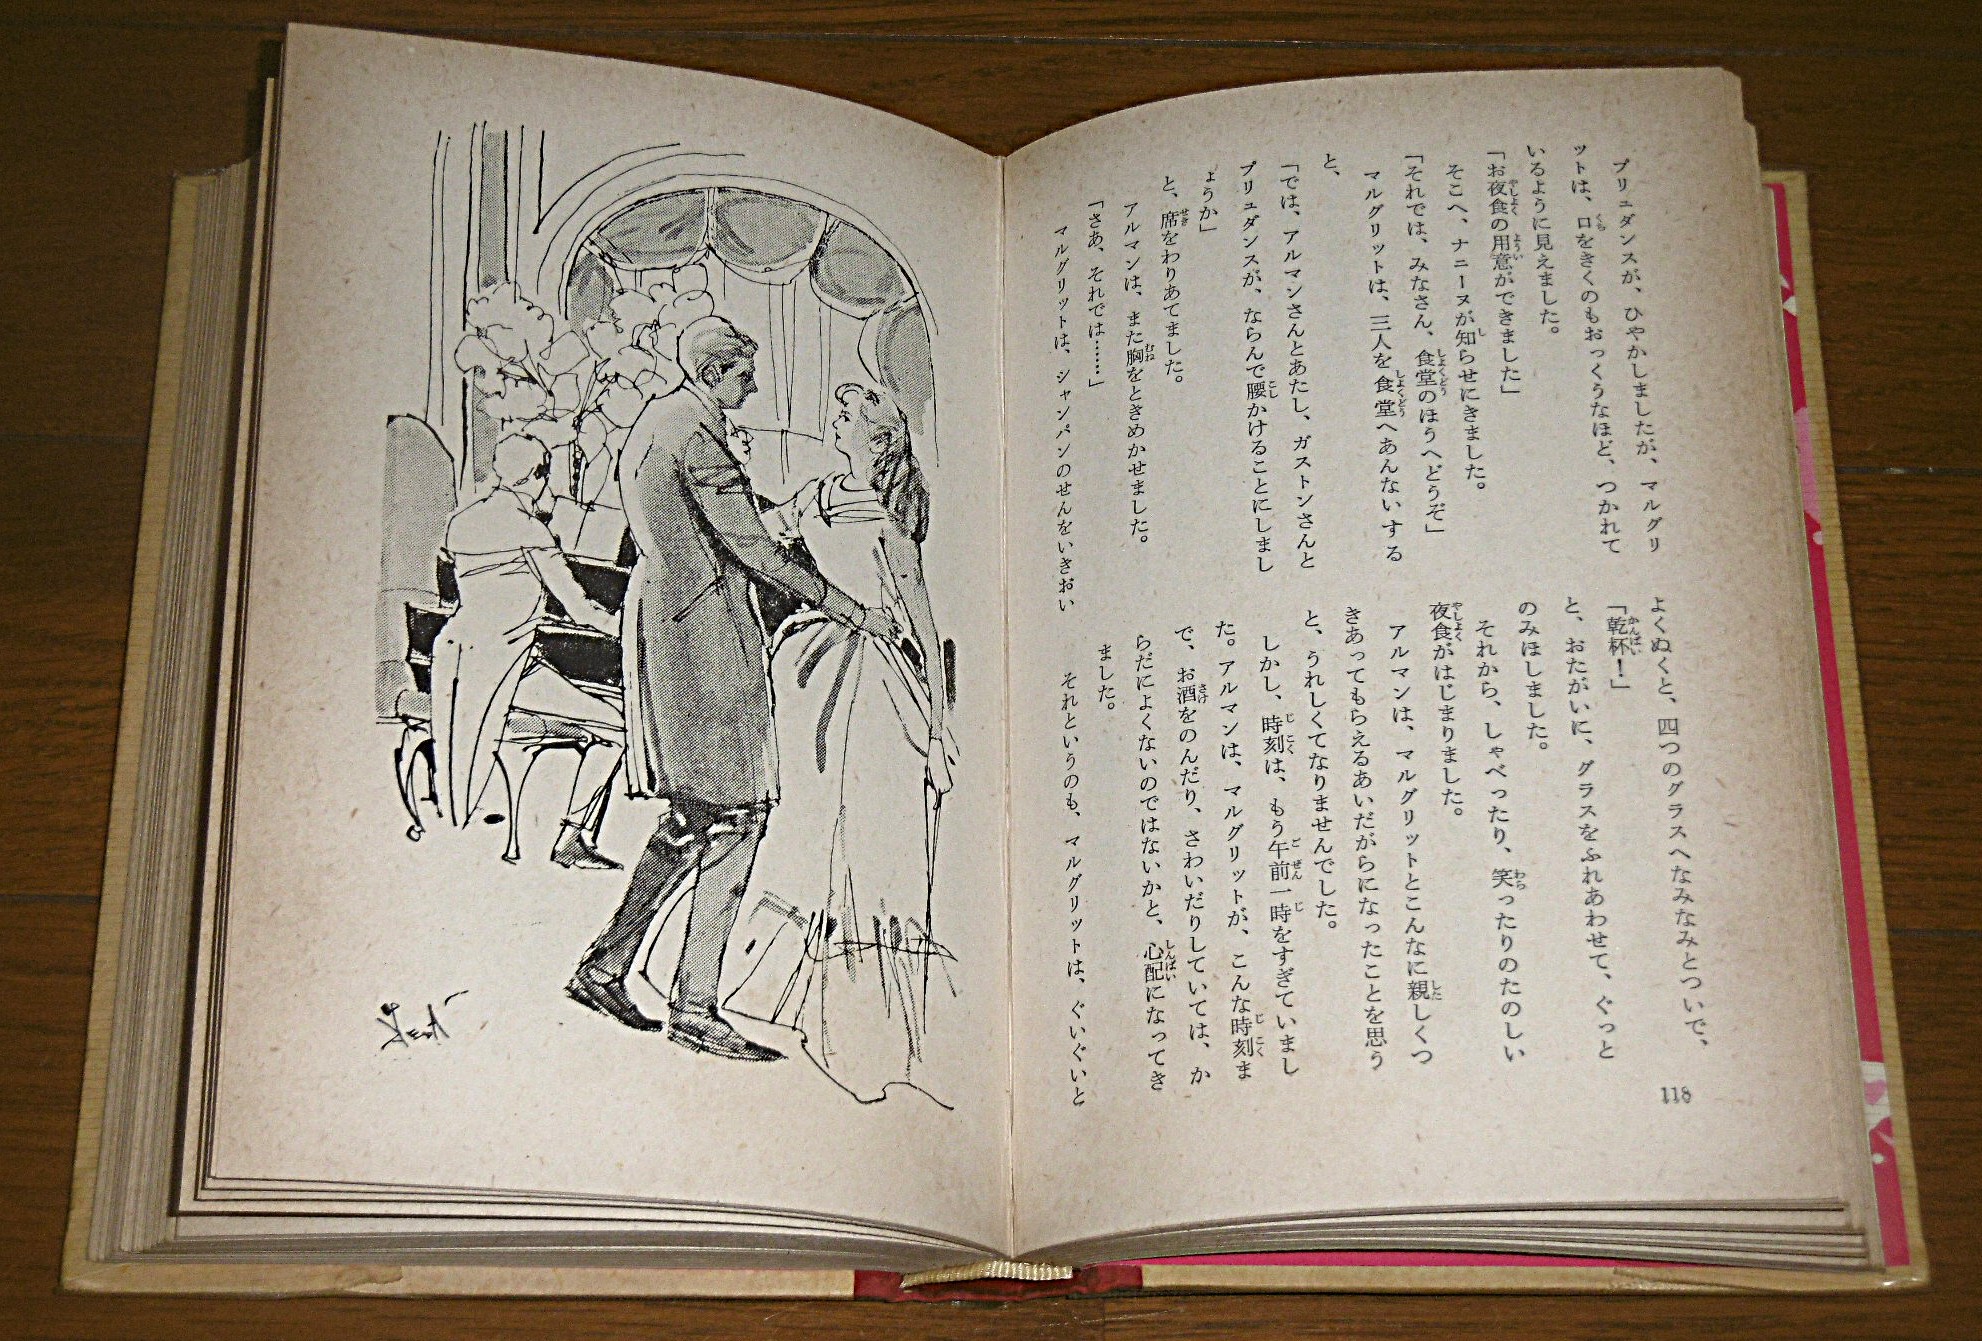 プリュダンスが、ひやかしましたが、マルグリ
ットは、口をきくのもおっくうなほど、つかれて
いるように見えました。
「お夜食の用意ができました」
そこへ、ナニーヌが知らせにきました。
「それでは、みなさん、食堂のほうへどうぞ」
マルグリットは、三人を食堂へあんないする
と、
「では、アルマンさんとあたし、ガストンさんと
プリュダンスが、ならんで腰かけることにしまし
ょうか」
と、席をわりあてました。
アルマンは、また胸をときめかせました。
「さあ、それでは……」
マルグリットは、シャンパンのせんをいきおい
よくぬくと、四つのグラスへなみなみとついで、
「乾杯！」
と、おたがいに、グラスをふれあわせて、ぐっと
のみほしました。
それから、しゃべったり、笑ったりのたのしい
夜食がはじまりました。
アルマンは、マルグリットとこんなに親しくつ
きあってもらえるあいだがらになったことを思う
と、うれしくてなりませんでした。
しかし、時刻は、もう午前一時をすぎていまし
た。アルマンは、マルグリットが、こんな時刻ま
で、お酒をのんだり、さわいだりしていては、か
らだによくないのではないかと、心配になってき
ました。
それというのも、マルグリットは、ぐいぐいと
118